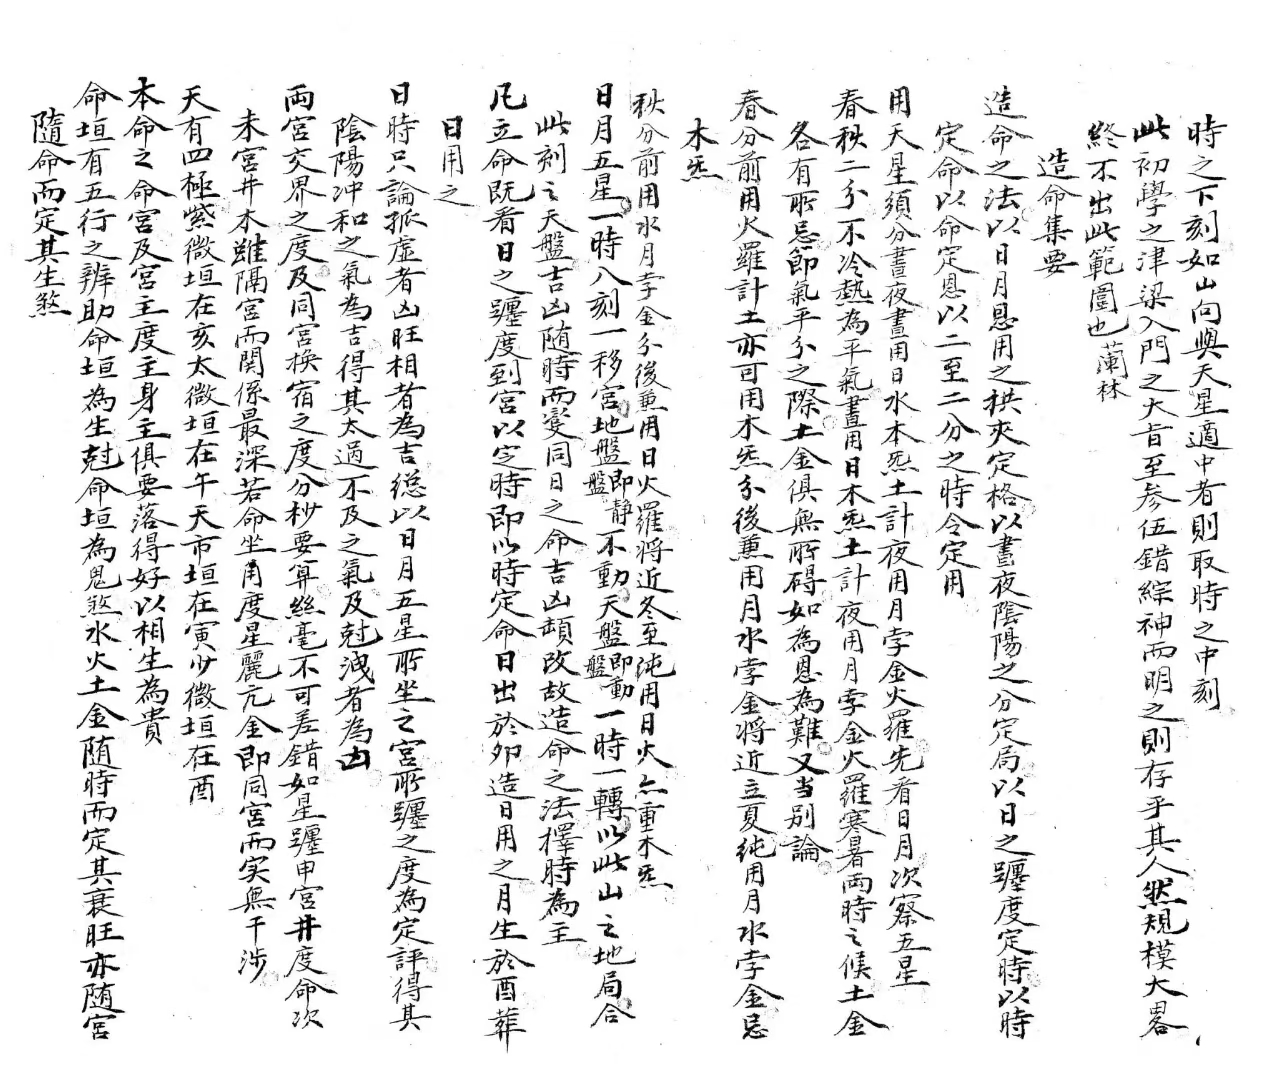 時之下刻如山向與天星適中者則取時之中刻
此初學之津梁入門之大旨至參伍錯綜神而明之則存乎其人然規模大畧
終不出此範圍也蘭林
造命集要
造命之法以日月恩用之拱夾定格以晝夜陰陽之分定局以日之躔度定時以時
定命以命定恩以二至二分之時令定用
用天星須分晝夜晝用日水木炁土計夜用月孛金火羅先看日月次察五星
春秋二分不冷熱為平氣晝用日木炁土計夜用月孛金火羅寒暑兩時之候土金
各有所忌即氣平分之際土金俱無所碍如為恩為難又当别論
春分前用火羅計土亦可用木炁分後兼用月水孛金将近立夏純用月水孛金忌
木炁
秋分前用水月孛金分後兼用日火羅将近冬至純用日火亦重木炁
日月五星一時八刻一移宮地盤即靜盤不動天盤即動盤一時一轉以此山之地局合
此刻之天盤吉凶随時而变同日之命吉凶頓改故造命之法擇時為主
凡立命既看日之躔度到宮以定時即以時定命日出於卯造日用之月生於酉葬
日用之
日時只論孤虚者凶旺相者為吉總以日月五星所坐之宮所躔之度為定評得其
陰陽冲和之氣為吉得其太過不及之氣及尅洩者為凶
両宮交界之度及同宮換宿之度分杪要筭絲毫不可差錯如星躔申宮井度命次
未宮井木雖隔宮而関係最深若命坐角度星麗亢金即同宮而实無干涉
天有四極紫微垣在亥太微垣在午天市垣在寅少微垣在酉
本命之命宮及宮主度主身主俱要落得好以相生為貴
命垣有五行之辨助命垣為生尅命垣為鬼煞水火土金随時而定其衰旺亦随宮
隨命而定其生煞